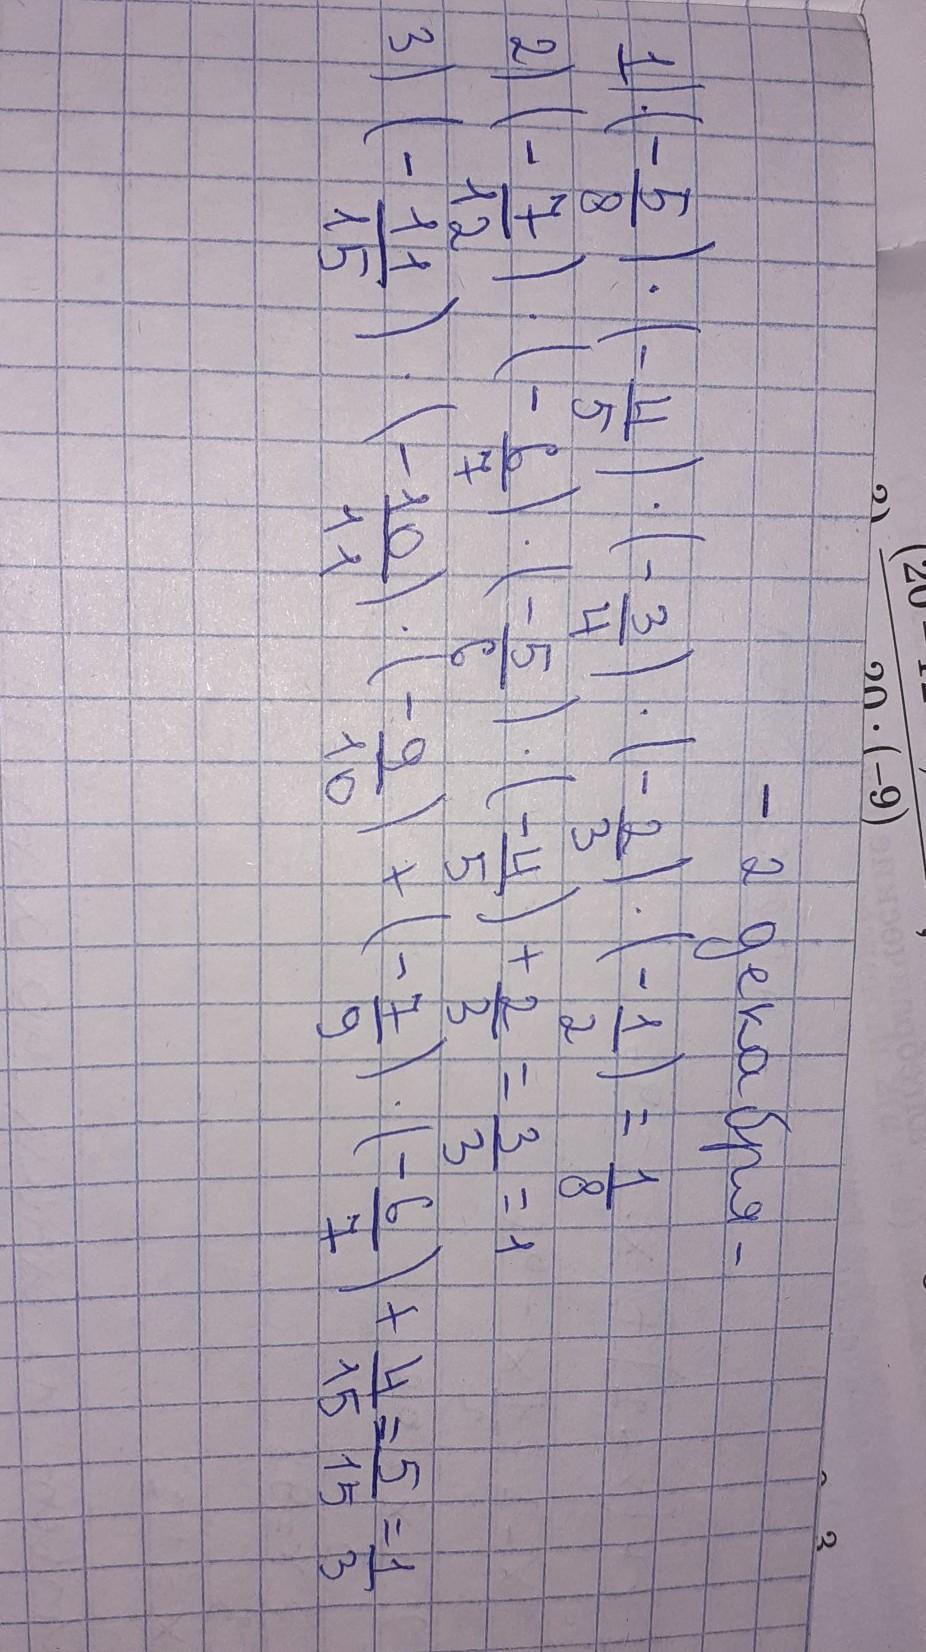 - 2 декабря -
1) (-5/8) · (-4/5) · (-3/4) · (-2/3) · (-1/2) = 1/8
2) (-7/12) · (-6/7) · (-5/6) · (-4/5) + 2/3 = 3/3 = 1
3) (-11/15) · (-10/11) · (-9/10) + (-7/9) · (-6/7) + 4/15 = 5/15 = 1/3
2)
20 · (-9)